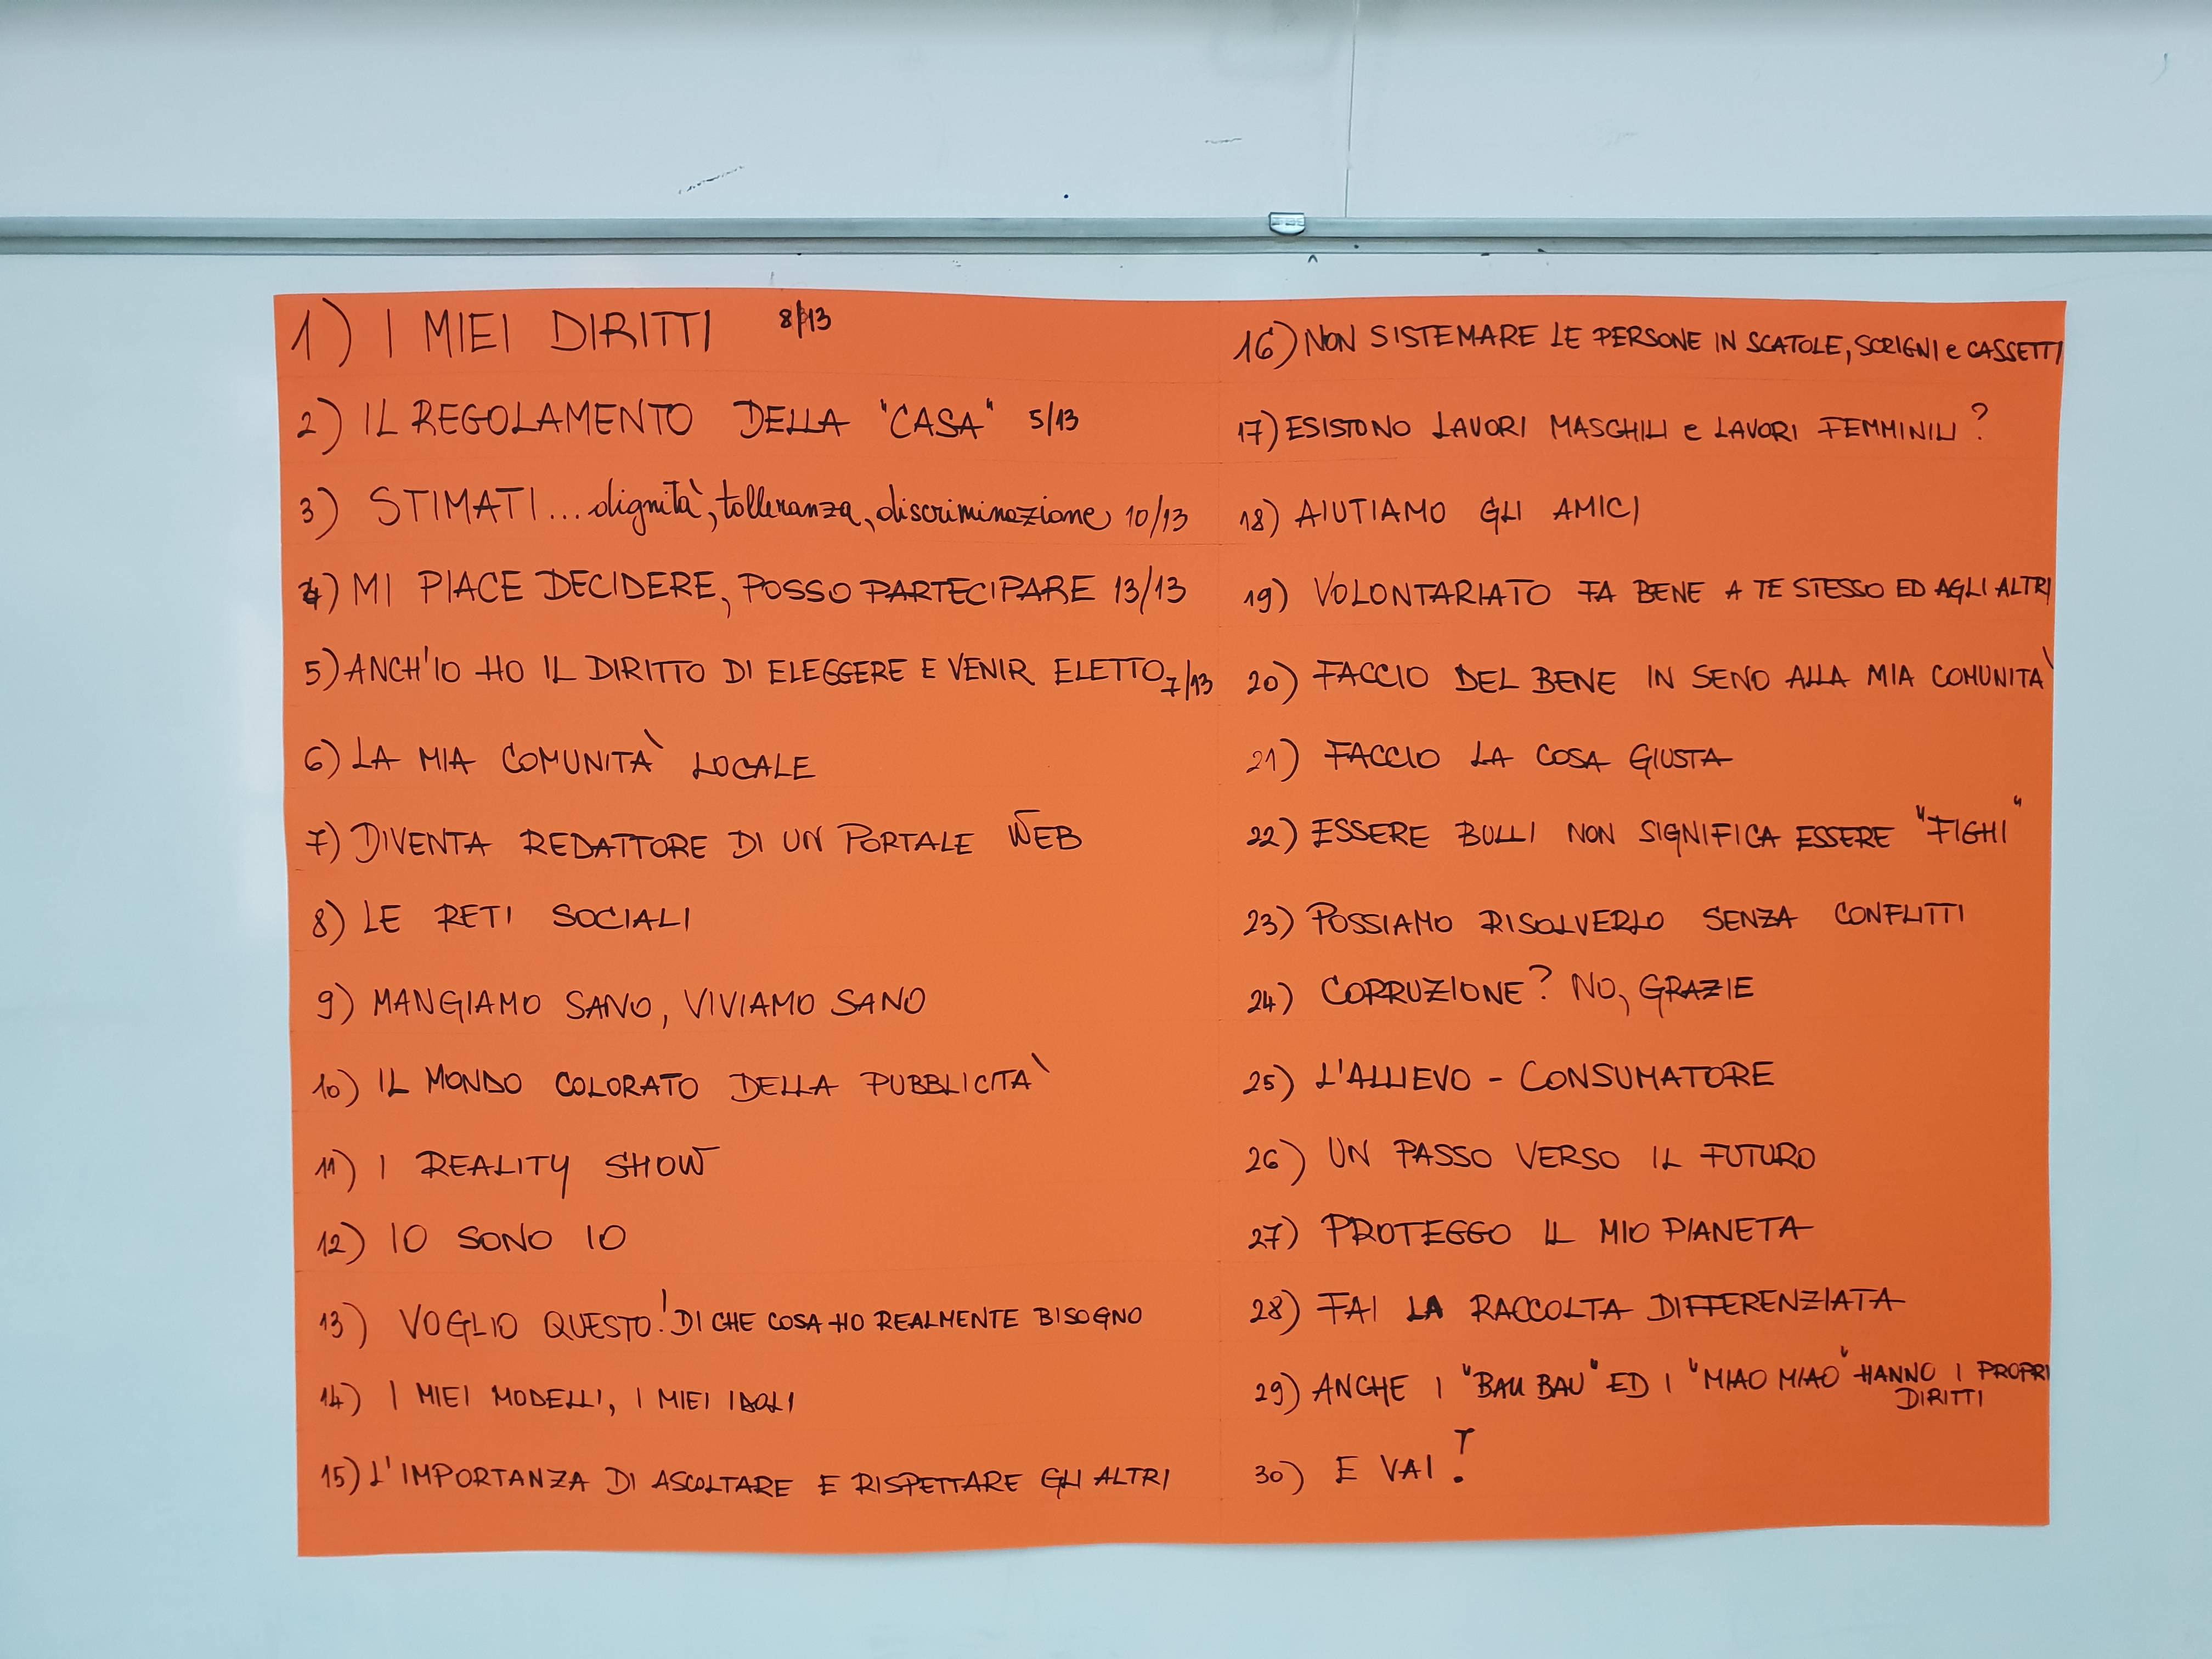 1) I MIEI DIRITTI 8/13
2) IL REGOLAMENTO DELLA "CASA" 5/13
3) STIMATI... dignità, tolleranza, discriminazione 10/13
4) MI PIACE DECIDERE, POSSO PARTECIPARE 13/13
5) ANCH'IO HO IL DIRITTO DI ELEGGERE E VENIR ELETTO 7/13
6) LA MIA COMUNITÀ LOCALE
7) DIVENTA REDATTORE DI UN PORTALE WEB
8) LE RETI SOCIALI
9) MANGIAMO SANO, VIVIAMO SANO
10) IL MONDO COLORATO DELLA PUBBLICITÀ
11) I REALITY SHOW
12) IO SONO IO
13) VOGLIO QUESTO! DI CHE COSA HO REALMENTE BISOGNO
14) I MIEI MODELLI, I MIEI IDOLI
15) L'IMPORTANZA DI ASCOLTARE E RISPETTARE GLI ALTRI
16) NON SISTEMARE LE PERSONE IN SCATOLE, SCRIGNI e CASSETTI
17) ESISTONO LAVORI MASCHILI e LAVORI FEMMINILI?
18) AIUTIAMO GLI AMICI
19) VOLONTARIATO FA BENE A TE STESSO ED AGLI ALTRI
20) FACCIO DEL BENE IN SENO ALLA MIA COMUNITÀ
21) FACCIO LA COSA GIUSTA
22) ESSERE BULLI NON SIGNIFICA ESSERE "FIGHI"
23) POSSIAMO RISOLVERLO SENZA CONFLITTI
24) CORRUZIONE? NO, GRAZIE
25) L'ALLIEVO - CONSUMATORE
26) UN PASSO VERSO IL FUTURO
27) PROTEGGO IL MIO PIANETA
28) FAI LA RACCOLTA DIFFERENZIATA
29) ANCHE I "BAU BAU" ED I "MIAO MIAO" HANNO I PROPRI
DIRITTI
30) E VAI!